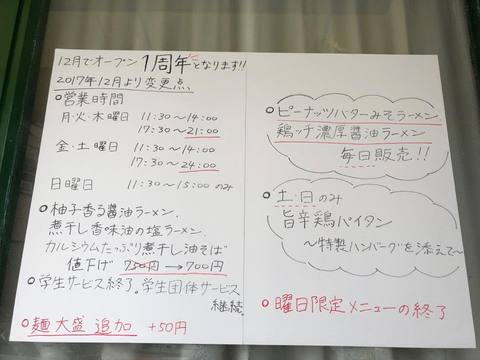 12月でオープン1周年となります!!
2017年12月より変更点
営業時間
月・火・木曜日 11:30〜14:00
17:30〜21:00
金・土曜日 11:30〜14:00
17:30〜24:00
日曜日 11:30〜15:00のみ
柚子香る醤油ラーメン、
煮干し香味油の塩ラーメン、
カルシウムたっぷり煮干し油そば
値下げ 750円→700円
学生サービス終了。学生団体サービス
継続。
麺大盛 追加 +50円
ピーナッツバターみそラーメン、
鶏ッチ濃厚醤油ラーメン
毎日販売!!
土・日のみ
旨辛鶏パイタン
〜特製ハンバーグを添えて〜
曜日限定メニューの終了